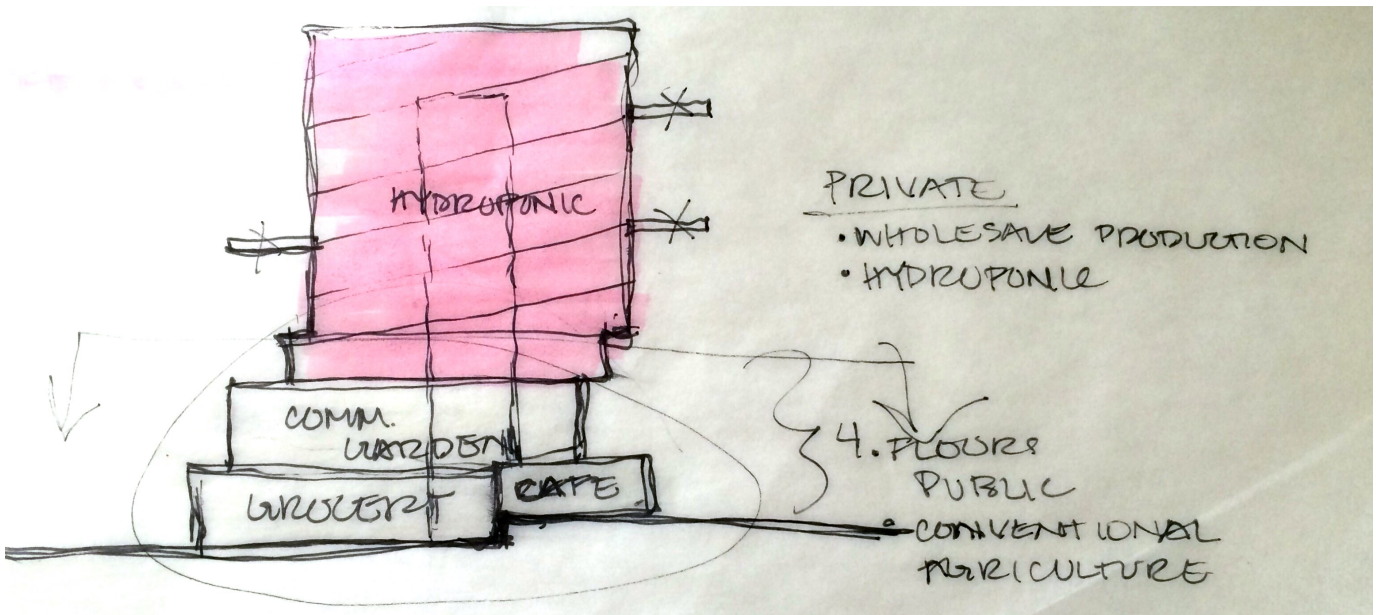 HYDROPONIC
COMM.
GARDEN
GROCERY
CAFE
PRIVATE
• WHOLESALE PRODUCTION
• HYDROPONIC
4. FLOORS
PUBLIC
• CONVENTIONAL
AGRICULTURE